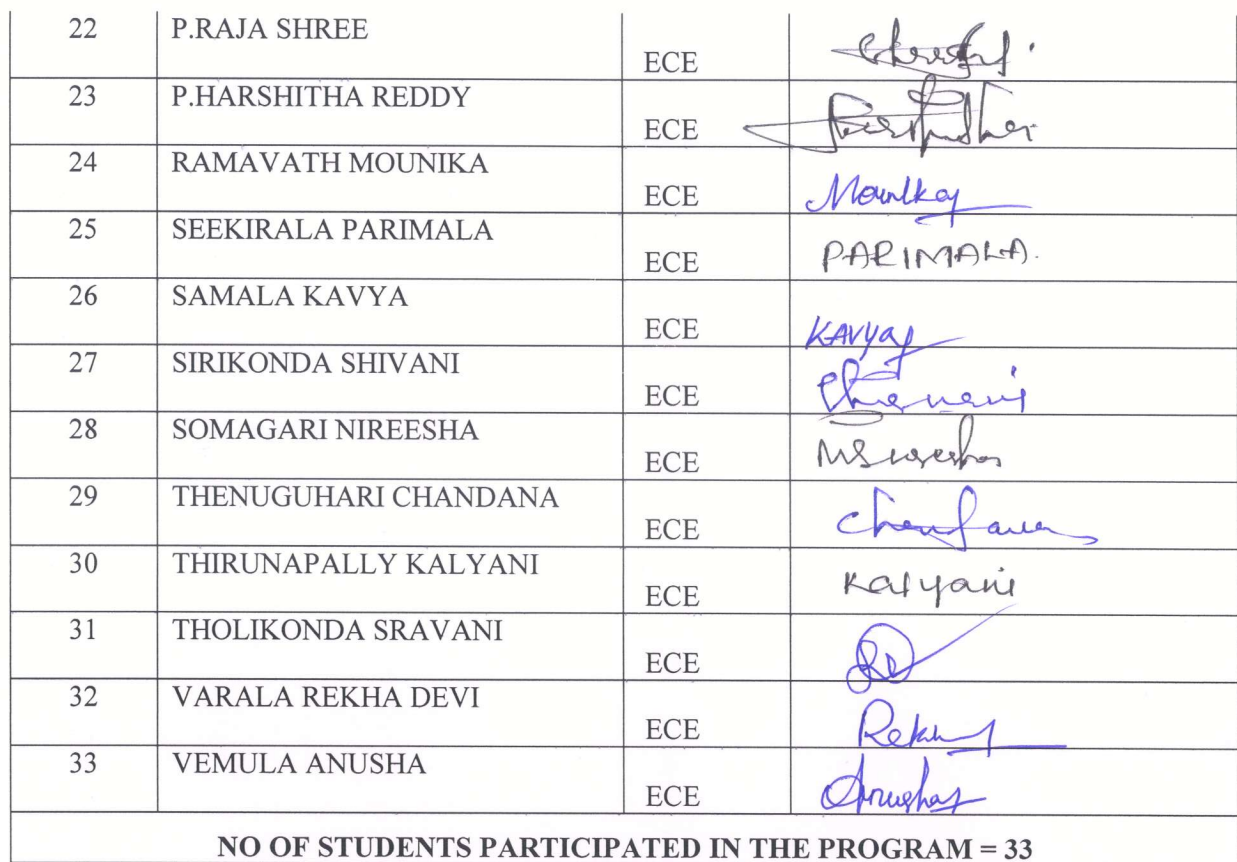 22 P.RAJA SHREE ECE
23 P.HARSHITHA REDDY ECE
24 RAMAVATH MOUNIKA ECE Mounika
25 SEEKIRALA PARIMALA ECE PARIMALA.
26 SAMALA KAVYA ECE KAVya
27 SIRIKONDA SHIVANI ECE
28 SOMAGARI NIREESHA ECE
29 THENUGUHARI CHANDANA ECE Chandana
30 THIRUNAPALLY KALYANI ECE Kalyani
31 THOLIKONDA SRAVANI ECE
32 VARALA REKHA DEVI ECE Rekha
33 VEMULA ANUSHA ECE Anusha
NO OF STUDENTS PARTICIPATED IN THE PROGRAM = 33